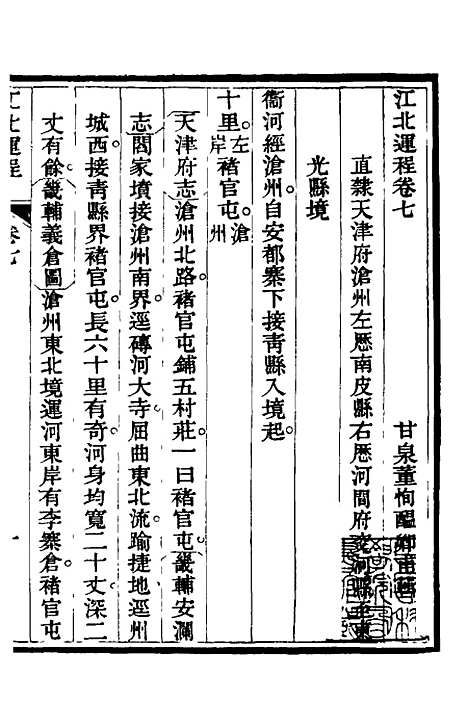 江北運程卷七
甘泉董恂醞卿甫
直隸天津府滄州左歷南皮縣右歷河間府交河縣至東
光縣境
衞河經滄州自安都寨下接靑縣入境起
十里左岸褚官屯滄州
天津府志滄州北路褚官屯鋪五村莊一曰褚官屯畿輔安瀾
志閻家墳接滄州南界逕磚河大寺屈曲東北流踰捷地逕州
城西接靑縣界褚官屯長六十里有奇河身均寬二十丈深二
丈有餘畿輔義倉圖滄州東北境運河東岸有李寨倉褚官屯
江北運程
卷七
一